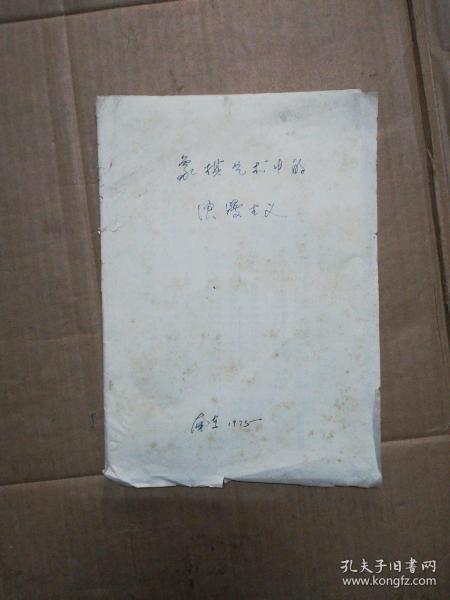 象棋艺术中的
浪漫主义
1975
孔夫子旧书网
www.kongfz.com